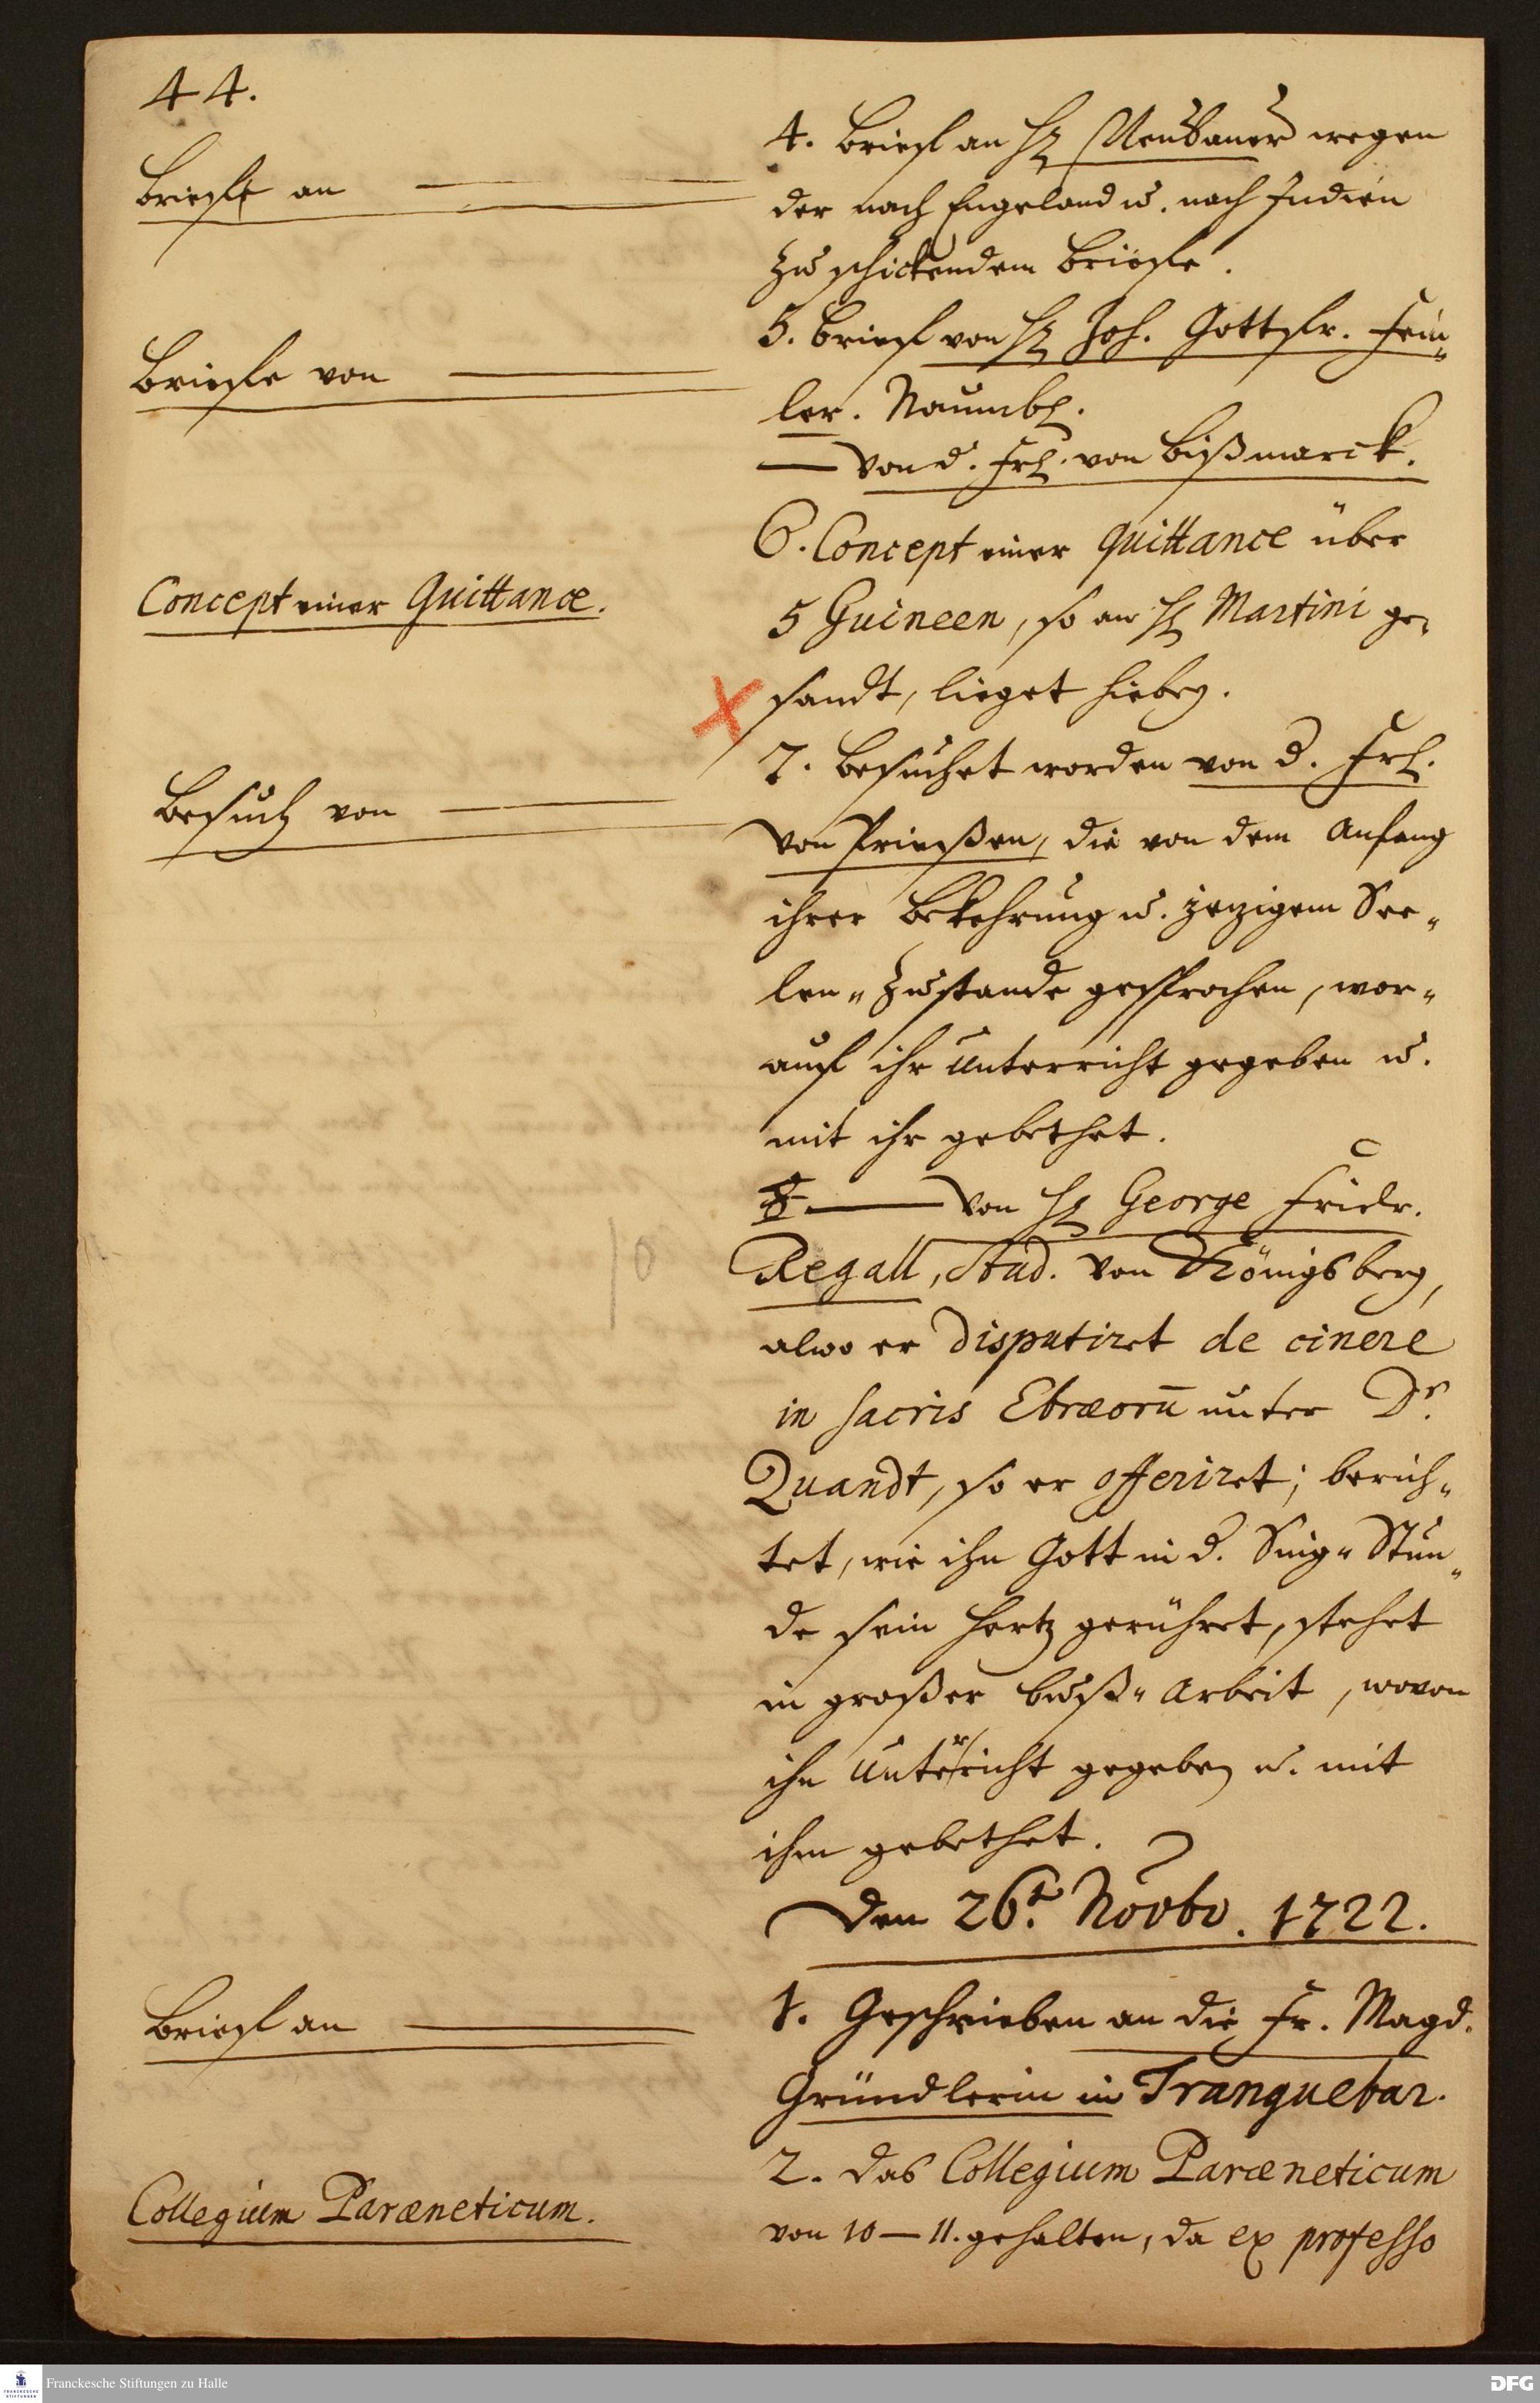 44.
Brieffe an
4. Brieff an H. Neubauer wegen
der nach Engeland u. nach Indien
zu schickendem Brieffe.
Brieffe von
5. Brieff von H. Joh. Gottfr. Fein-
ler. Naumb.
— von d. Frl. von Bißmarck.
Concept einer Quittance.
6. Concept einer quittance über
5 Guineen, so an H. Martini ge-
sandt, lieget hiebey.
Besuch von
7. Besuchet worden von d. Frl.
von Prießen, die von dem Anfang
ihrer Bekehrung u. jezigem See-
len-Zustande gesprochen, wor-
auf ihr Unterricht gegeben u.
mit ihr gebethet.
8. — von H. George Fridr.
Regall, Stud. von Königsberg,
alwo er disputiret de cinere
in sacris Ebræorū unter Dr.
Quandt, so er offeriret; berich-
tet, wie ihn Gott in d. Sing-Stun-
de sein Hertz gerühret, stehet
in großer Buß-Arbeit, wovon
ihn Unterricht gegeben u. mit
ihm gebethet.
Den 26t. Novbr. 1722.
Brieff an
1. Geschrieben an die Fr. Magd.
Gründlerin in Tranquebar.
Collegium Paræneticum.
2. das Collegium Paræneticum
von 10—11. gehalten, da ex professo
Franckesche Stiftungen zu Halle
DFG